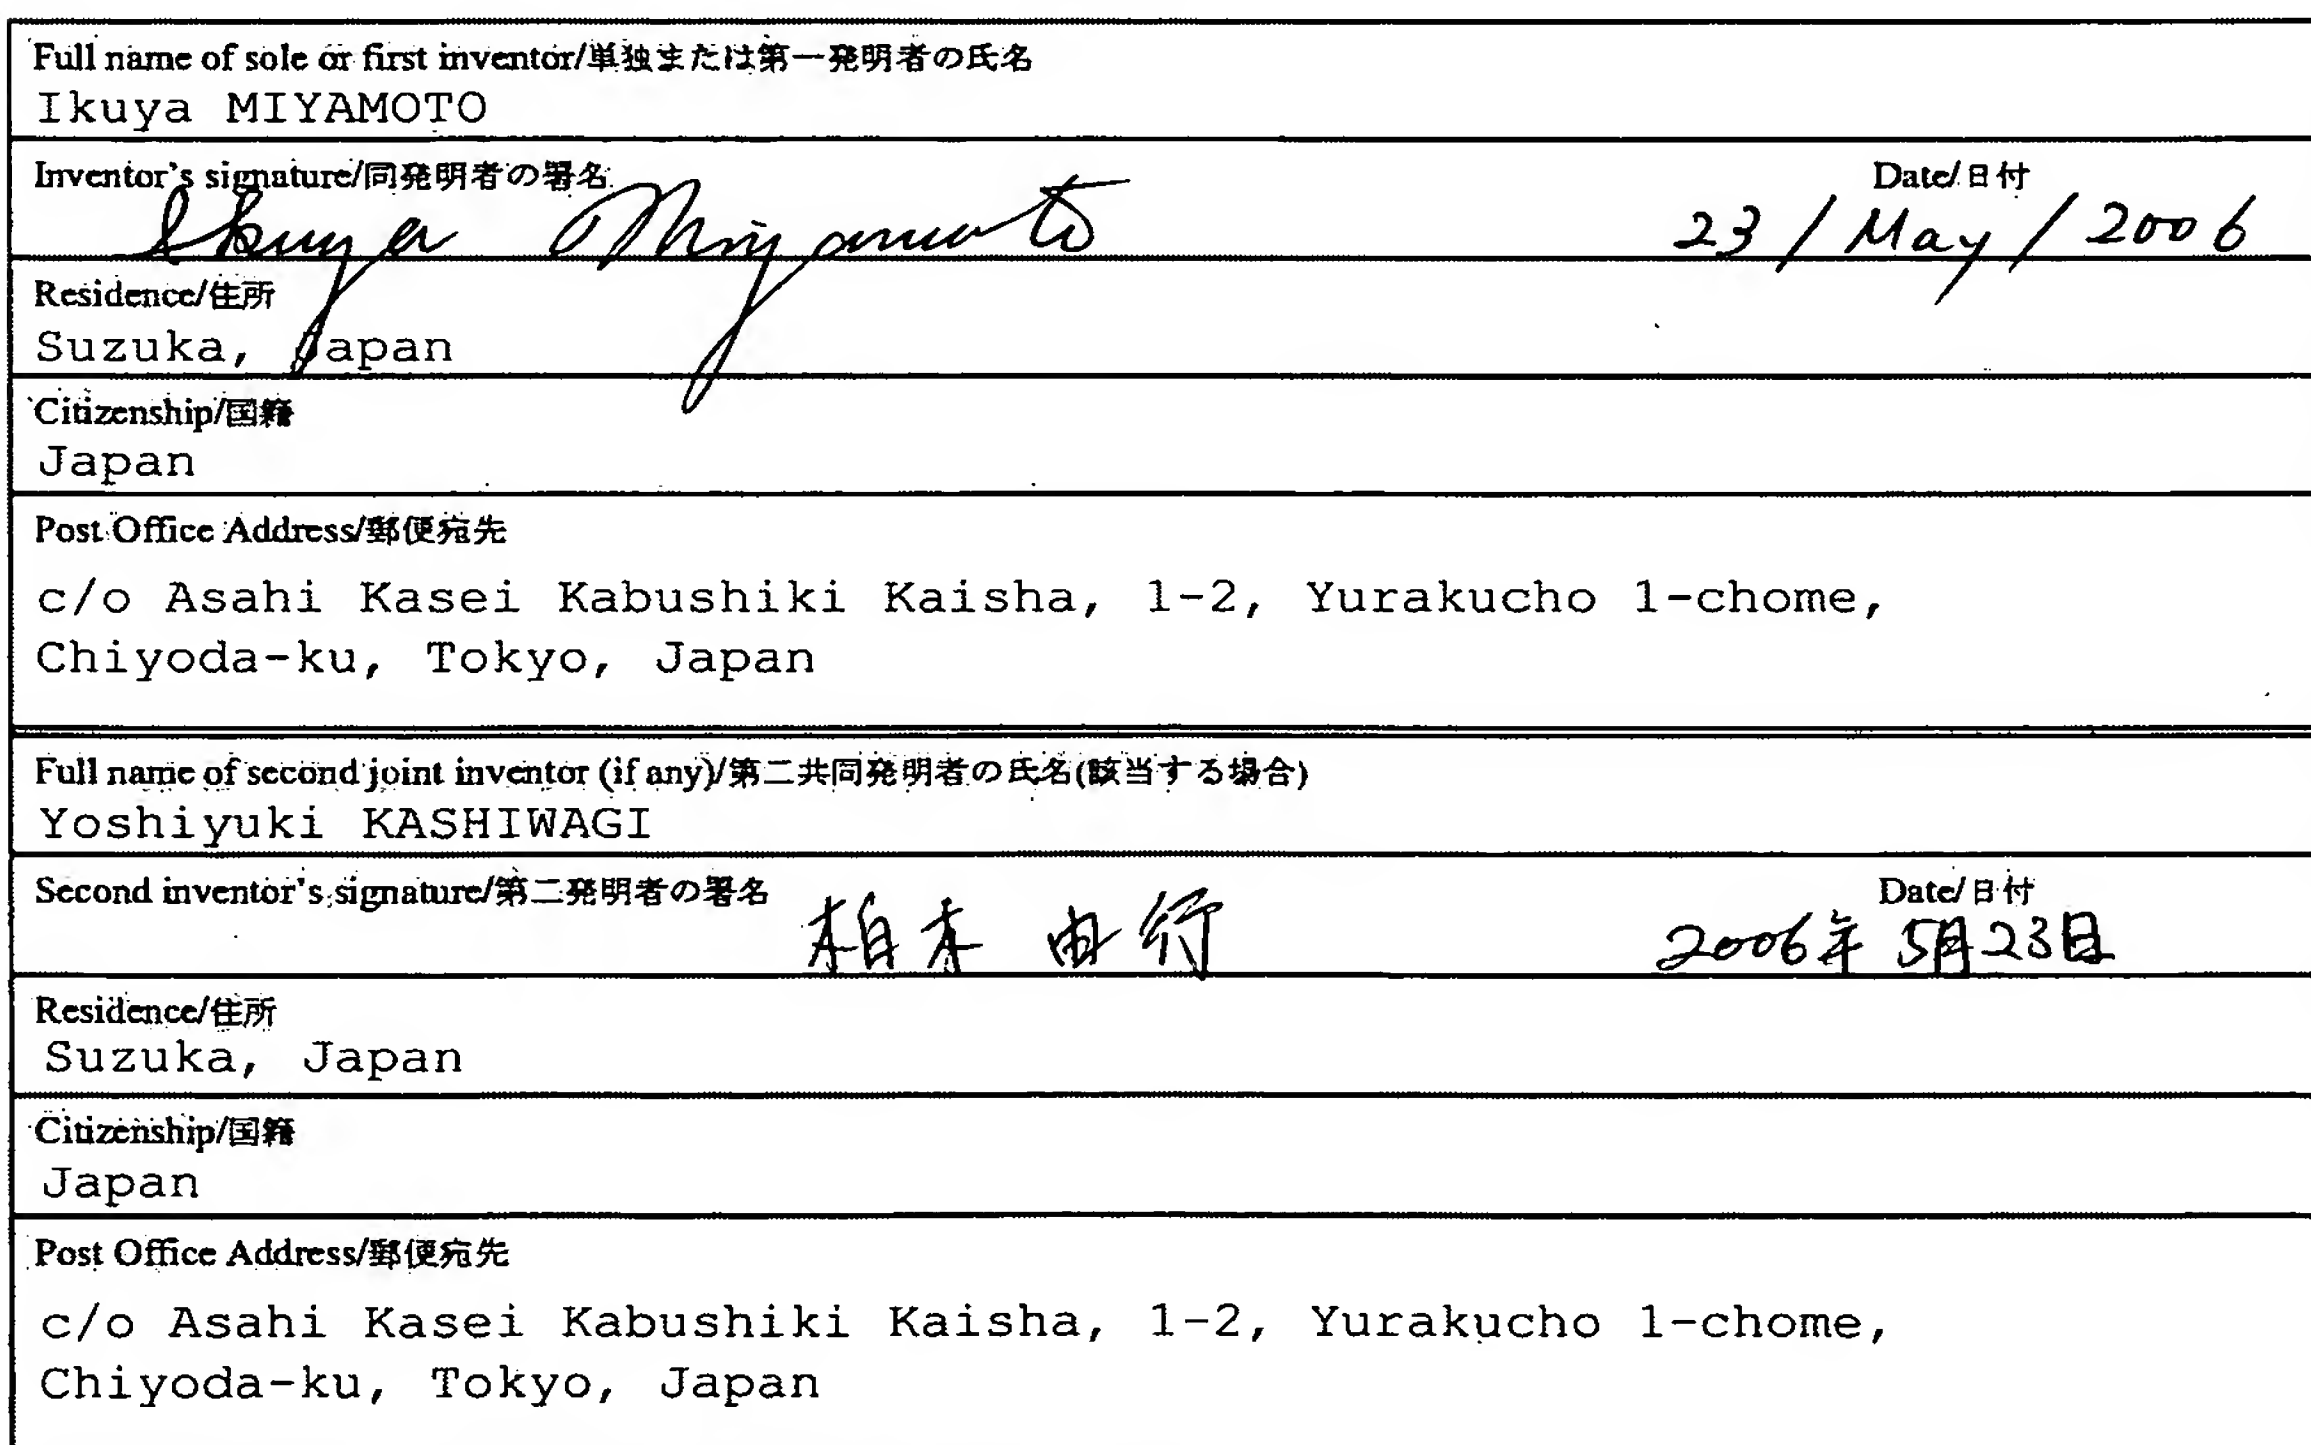 Full name of sole or first inventor/単独または第一発明者の氏名
Ikuya MIYAMOTO
Inventor's signature/同発明者の署名 Date/日付
Ikuya Miyamoto 23/May/2006
Residence/住所
Suzuka, Japan
Citizenship/国籍
Japan
Post Office Address/郵便宛先
c/o Asahi Kasei Kabushiki Kaisha, 1-2, Yurakucho 1-chome,
Chiyoda-ku, Tokyo, Japan
Full name of second joint inventor (if any)/第二共同発明者の氏名(該当する場合)
Yoshiyuki KASHIWAGI
Second inventor's signature/第二発明者の署名 Date/日付
柏木 由行 2006年 5月23日
Residence/住所
Suzuka, Japan
Citizenship/国籍
Japan
Post Office Address/郵便宛先
c/o Asahi Kasei Kabushiki Kaisha, 1-2, Yurakucho 1-chome,
Chiyoda-ku, Tokyo, Japan